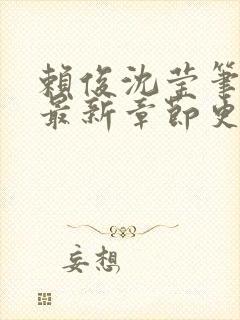 賴俊沈莹筆
最新章節史
妄想